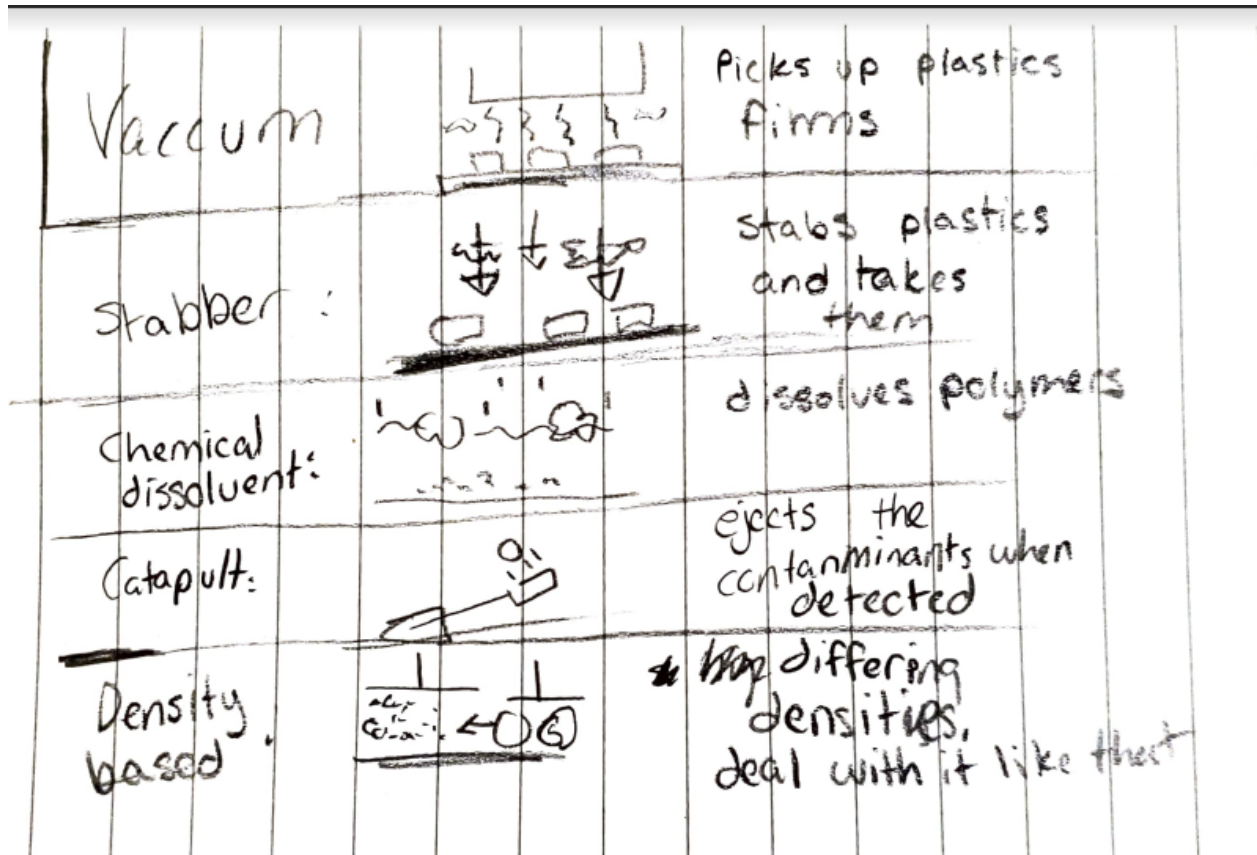 Vaccum
Picks up plastics
firms
Stabber:
stabs plastics
and takes
them
Chemical
dissolvent:
dissolves polymers
Catapult:
ejects the
contanminants when
detected
Density
based.
differing
densities,
deal with it like that